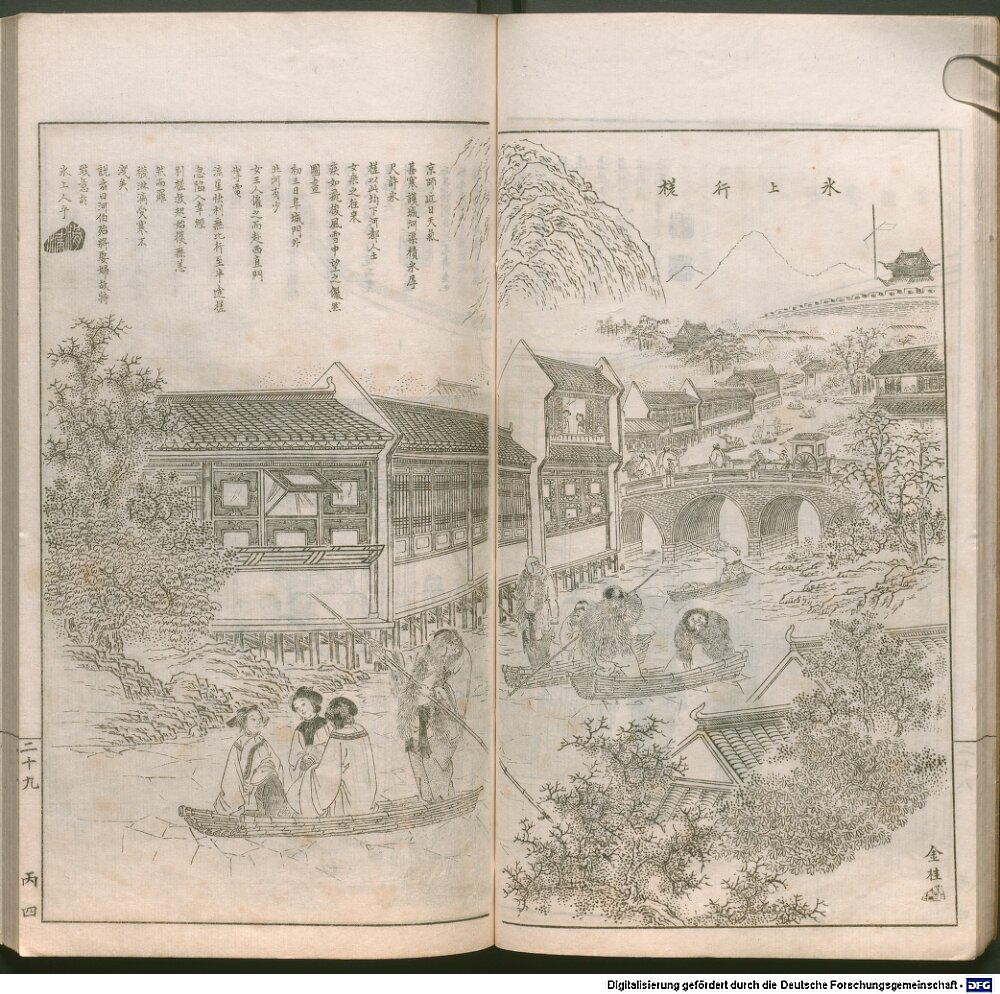 氷上行槎
京師近日天氣
甚寒護城河渠積氷厚
尺許氷
槎以此均下河都人士
女乘之往來
疾如飛梭風雪中望之儼然
圖畫
初三日阜城門外
北河有少
女三人僱之而赴西直門
掣電
流星快利無比行至半途槎
忽陷入幸經
別槎救起始獲無恙
然而羅
襪淋漓受寒不
淺矣
說者曰河伯殆將娶婦故特
致意於
氷上人乎
金桂
二十九 丙四
Digitalisierung gefördert durch die Deutsche Forschungsgemeinschaft - DFG